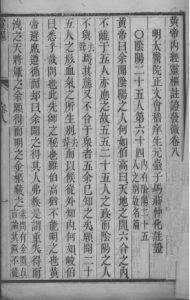 黃帝內經靈樞註證發微卷八
明太醫院正文會稽庠生元臺子馬蒔仲化註證
〇陰陽二十五人第六十四 內有陰陽二十五人之別故名篇
黃帝曰余聞陰陽之人何如伯高曰天地之間六合之內
不離于五人亦應之故五五二十五人之政而陰陽之人
不與焉其態又不合于衆者五余已知之矣願聞二十
五人之形血氣之所生別而以候從外知內何如岐伯
曰悉乎哉問也此先師之祕也雖伯高猶不能明之也黃
帝避席遵循而却曰余聞之得其人弗教是謂重失得而
洩之天將厭之余願得而明之金櫃藏之